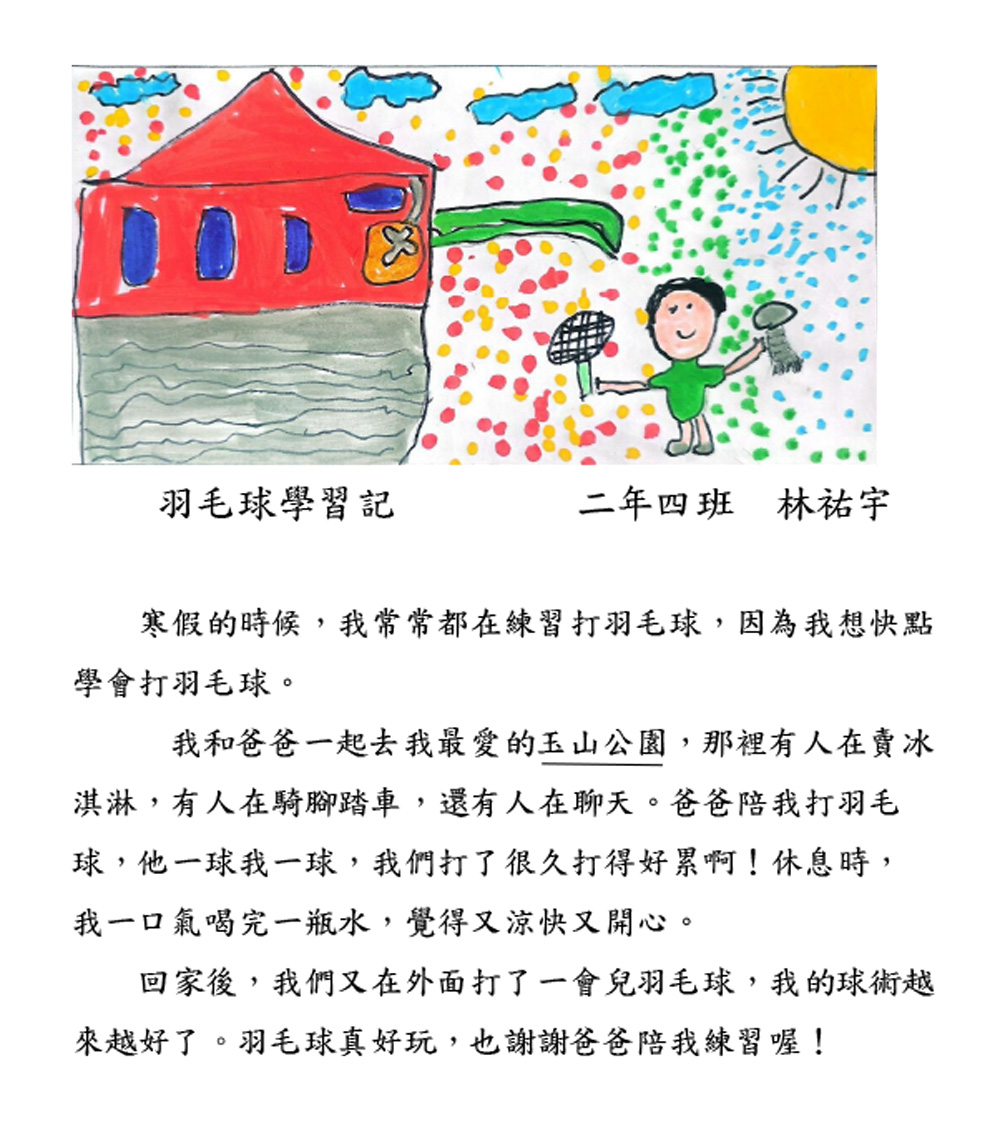 羽毛球學習記　二年四班　林祐宇
寒假的時候，我常常都在練習打羽毛球，因為我想快點
學會打羽毛球。
我和爸爸一起去我最愛的玉山公園，那裡有人在賣冰
淇淋，有人在騎腳踏車，還有人在聊天。爸爸陪我打羽毛
球，他一球我一球，我們打了很久打得好累啊！休息時，
我一口氣喝完一瓶水，覺得又涼快又開心。
回家後，我們又在外面打了一會兒羽毛球，我的球術越
來越好了。羽毛球真好玩，也謝謝爸爸陪我練習喔！